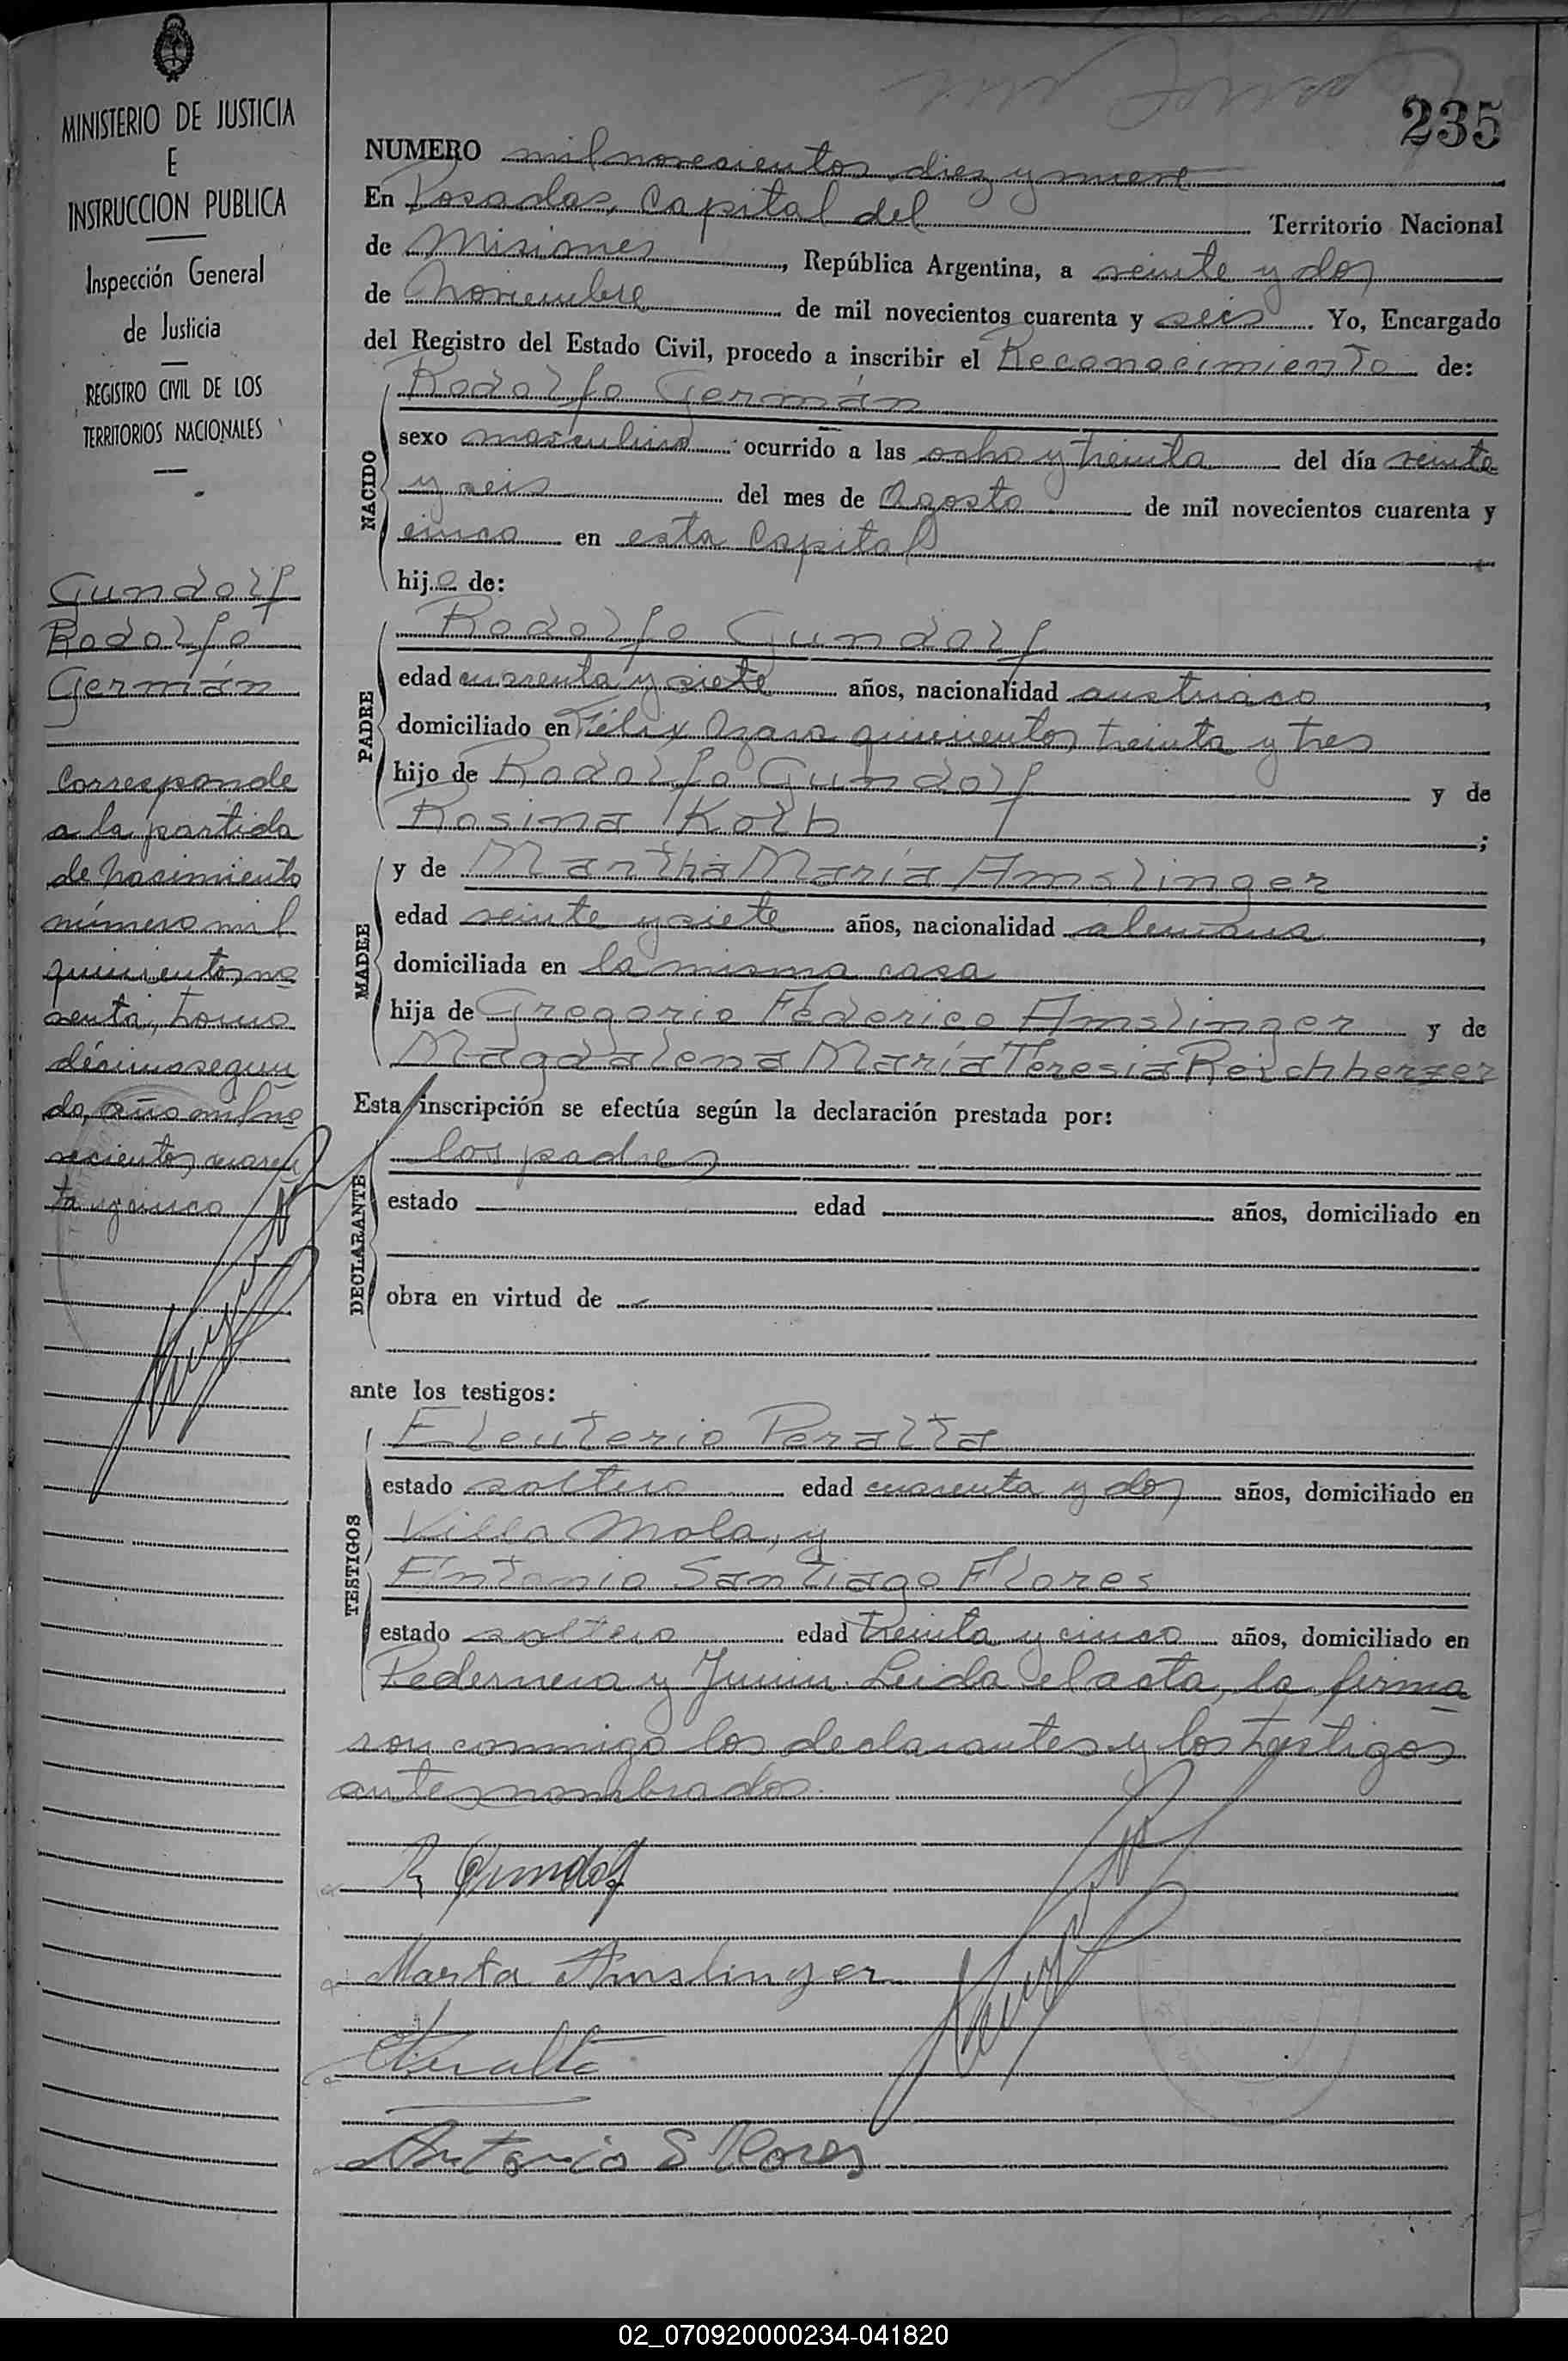 MINISTERIO DE JUSTICIA
E
INSTRUCCION PUBLICA
Inspección General
de Justicia
REGISTRO CIVIL DE LOS
TERRITORIOS NACIONALES
Gundolf
Rodolfo
Germán
Corresponde
a la partida
de nacimiento
número mil
quinientos no
venta, tomo
décimo segun
do, año mil no
vecientos cuaren
ta y cinco
235
NUMERO mil novecientos diez y nueve
En Posadas, Capital del Territorio Nacional
de Misiones, República Argentina, a veinte y dos
de Noviembre de mil novecientos cuarenta y seis. Yo, Encargado
del Registro del Estado Civil, procedo a inscribir el Reconocimiento de:
NACIDO
Rodolfo Germán
sexo masculino ocurrido a las ocho y treinta del día veinte
y seis del mes de Agosto de mil novecientos cuarenta y
cinco en esta Capital
hijo de:
PADRE
Rodolfo Gundolf
edad cuarenta y siete años, nacionalidad austriaco,
domiciliado en Félix Azara quinientos treinta y tres
hijo de Rodolfo Gundolf y de
Rosina Kolb;
MADRE
y de Martha María Amslinger
edad veinte y siete años, nacionalidad alemana,
domiciliada en la misma casa
hija de Gregorio Féderico Amslinger y de
Magdalena María Teresia Reichherzer
Esta inscripción se efectúa según la declaración prestada por:
DECLARANTE
los padres
estado edad años, domiciliado en
obra en virtud de
ante los testigos:
TESTIGOS
Eleuterio Peralta
estado soltero edad cuarenta y dos años, domiciliado en
Villa Mola, y
Antonio Santiago Flores
estado soltero edad treinta y cinco años, domiciliado en
Pedernera y Junin. Leida el acta, la firma
ron conmigo los declarantes y los testigos
antes nombrados.
R Gundolf
Marta Amslinger
Peralta
Antonio S Flores
02_070920000234-041820